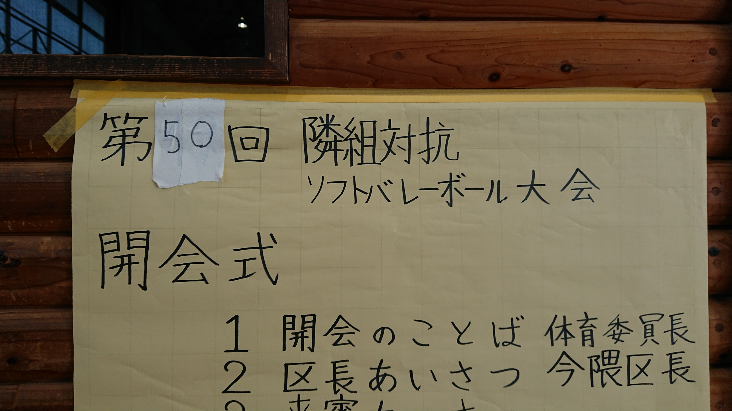 第50回 隣組対抗
ソフトバレーボール大会
開会式
1 開会のことば 体育委員長
2 区長あいさつ 今隈区長